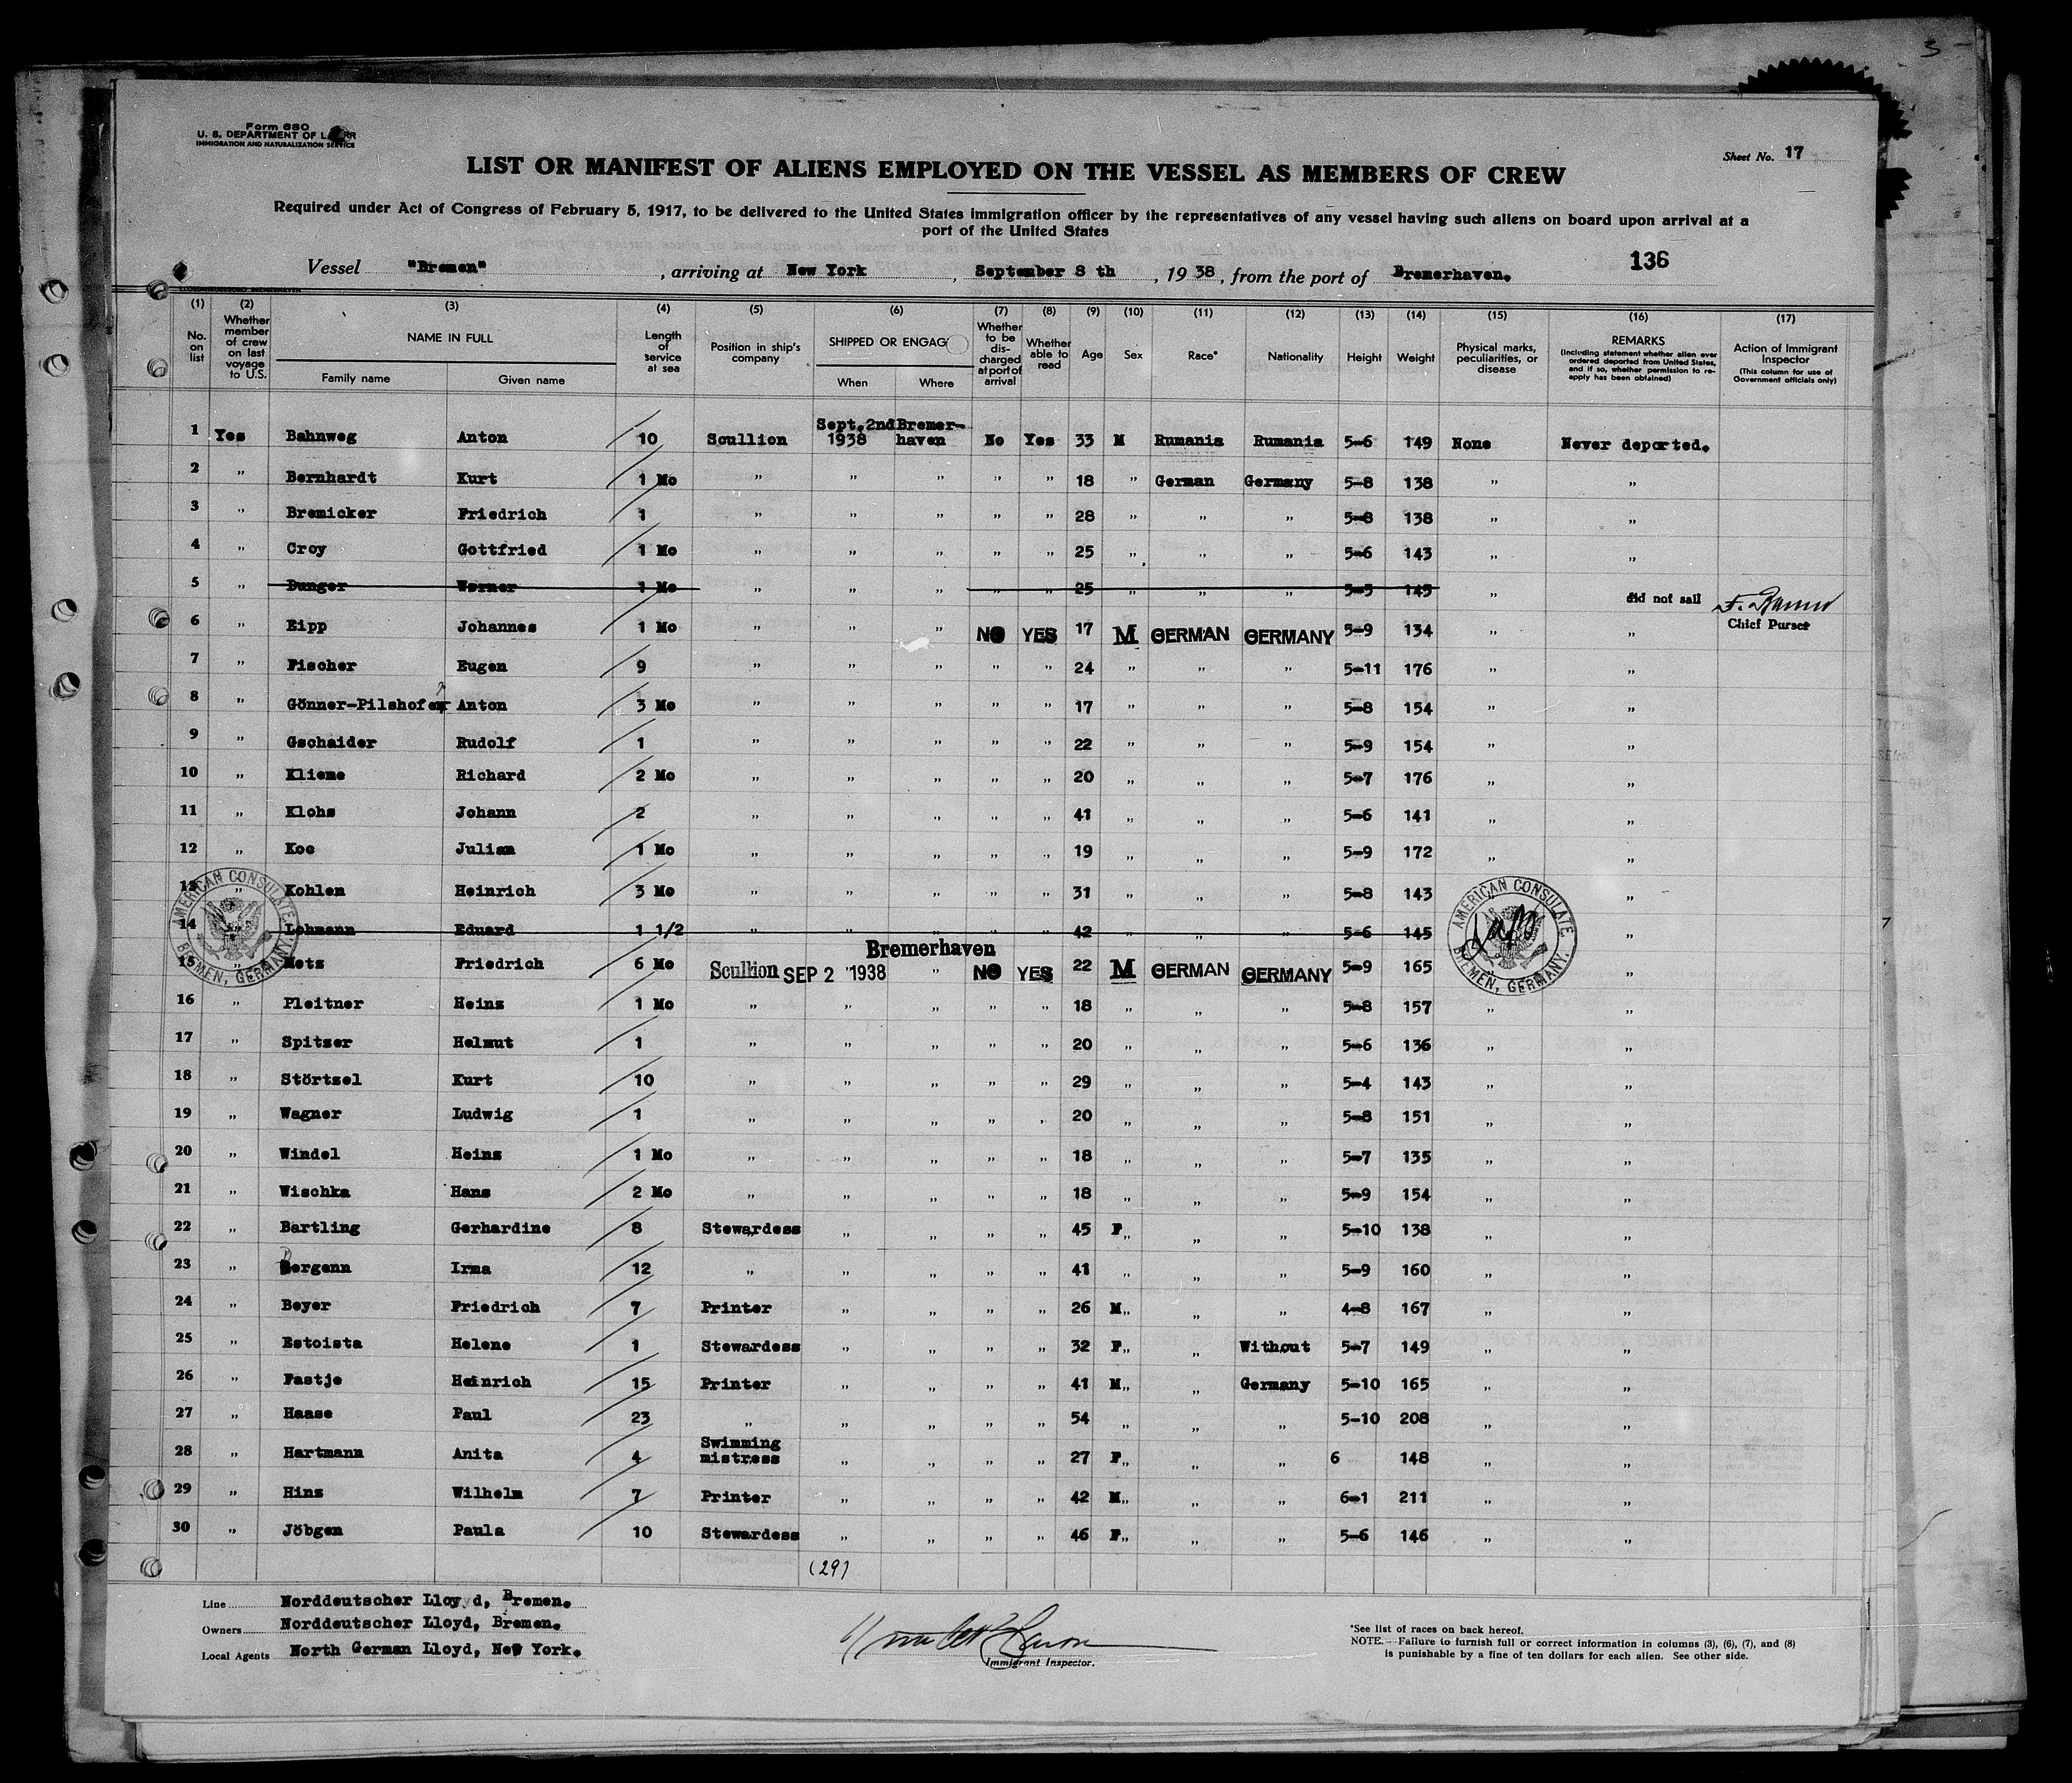 3
Form 680
U. S. DEPARTMENT OF LABOR
IMMIGRATION AND NATURALIZATION SERVICE
Sheet No. 17
LIST OR MANIFEST OF ALIENS EMPLOYED ON THE VESSEL AS MEMBERS OF CREW
Required under Act of Congress of February 5, 1917, to be delivered to the United States immigration officer by the representatives of any vessel having such aliens on board upon arrival at a
port of the United States
136
Vessel "Bremen", arriving at New York, September 8 th, 1938, from the port of Bremerhaven.
(1) (2) (3) (4) (5) (6) (7) (8) (9) (10) (11) (12) (13) (14) (15) (16) (17)
No. on list
Whether member of crew on last voyage to U.S.
NAME IN FULL
Family name Given name
Length of service at sea
Position in ship's company
SHIPPED OR ENGAG
When Where
Whether to be discharged at port of arrival
Whether able to read
Age Sex Race* Nationality Height Weight
Physical marks, peculiarities, or disease
REMARKS
(Including statement whether alien ever ordered deported from United States, and if so, whether permission to re-apply has been obtained)
Action of Immigrant Inspector
(This column for use of Government officials only)
1 Yes Bahnweg Anton 10 Scullion Sept. 2nd 1938 Bremer-haven No Yes 33 M Rumania Rumania 5-6 149 None Never deported.
2 " Bernhardt Kurt 1 Mo " " " " " 18 " German Germany 5-8 138 " "
3 " Bremicker Friedrich 1 " " " " " 28 " " " 5-8 138 " "
4 " Croy Gottfried 1 Mo " " " " " 25 " " " 5-6 143 " "
5 " Dunger Werner 1 Mo " " " " " 25 " " " 5-5 145 " did not sail
Chief Purser
6 " Eipp Johannes 1 Mo " " " NO YES 17 M GERMAN GERMANY 5-9 134 " "
7 " Fischer Eugen 9 " " " " " 24 " " " 5-11 176 " "
8 " Gönner-Pilshofer Anton 3 Mo " " " " " 17 " " " 5-8 154 " "
9 " Gschaider Rudolf 1 " " " " " 22 " " " 5-9 154 " "
10 " Klieme Richard 2 Mo " " " " " 20 " " " 5-7 176 " "
11 " Klohs Johann 2 " " " " " 41 " " " 5-6 141 " "
12 " Koc Julian 1 Mo " " " " " 19 " " " 5-9 172 " "
13 " Kohlen Heinrich 3 Mo " " " " " 31 " " " 5-8 143 "
14 Lohmann Eduard 1 1/2 " " " " " 42 " " " 5-6 145 "
15 " Metz Friedrich 6 Mo Scullion SEP 2 1938 Bremerhaven " NO YES 22 M GERMAN GERMANY 5-9 165 "
AMERICAN CONSULATE
BREMEN, GERMANY.
AMERICAN CONSULATE
BREMEN, GERMANY.
16 " Pleitner Heinz 1 Mo " " " " " 18 " " " 5-8 157 " "
17 " Spitzer Helmut 1 " " " " " 20 " " " 5-6 136 " "
18 " Störtzel Kurt 10 " " " " " 29 " " " 5-4 143 " "
19 " Wagner Ludwig 1 " " " " " 20 " " " 5-8 151 " "
20 " Windel Heinz 1 Mo " " " " " 18 " " " 5-7 135 " "
21 " Wischka Hans 2 Mo " " " " " 18 " " " 5-9 154 " "
22 " Bartling Gerhardine 8 Stewardess " " " " 45 F " " " 5-10 138 " "
23 " Bergenn Irma 12 " " " " " 41 " " " 5-9 160 " "
24 " Beyer Friedrich 7 Printer " " " " 26 M " " " 4-8 167 " "
25 " Estoista Helene 1 Stewardess " " " " 32 F " " Without 5-7 149 " "
26 " Fastje Heinrich 15 Printer " " " " 41 M " " Germany 5-10 165 " "
27 " Haase Paul 23 " " " " " 54 " " " 5-10 208 " "
28 " Hartmann Anita 4 Swimming mistress " " " " 27 F " " " 6 148 " "
29 " Hinz Wilhelm 7 Printer " " " " 42 M " " " 6-1 211 " "
30 " Jöbgen Paula 10 Stewardess " " " " 46 F " " " 5-6 146 " "
(29)
Line Norddeutscher Lloyd, Bremen.
Owners Norddeutscher Lloyd, Bremen.
Local Agents North German Lloyd, New York.
Immigrant Inspector.
*See list of races on back hereof.
NOTE.—Failure to furnish full or correct information in columns (3), (6), (7), and (8)
is punishable by a fine of ten dollars for each alien. See other side.